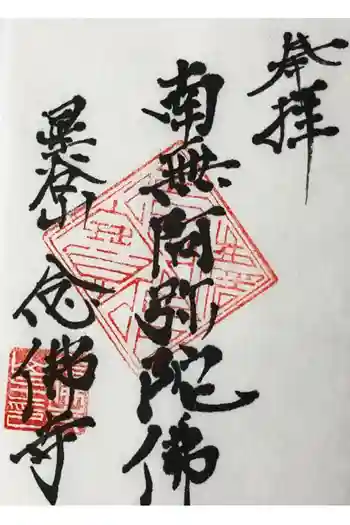 奉拝
南無阿弥陀佛
星谷山
念佛寺